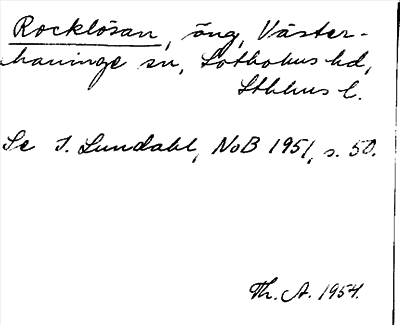 Rocklösan, äng, Väster-
haninge sn, Sotholms hd,
Sthlms l.
Se I. Lundahl, NoB 1951, s. 50.
Th. A. 1954.